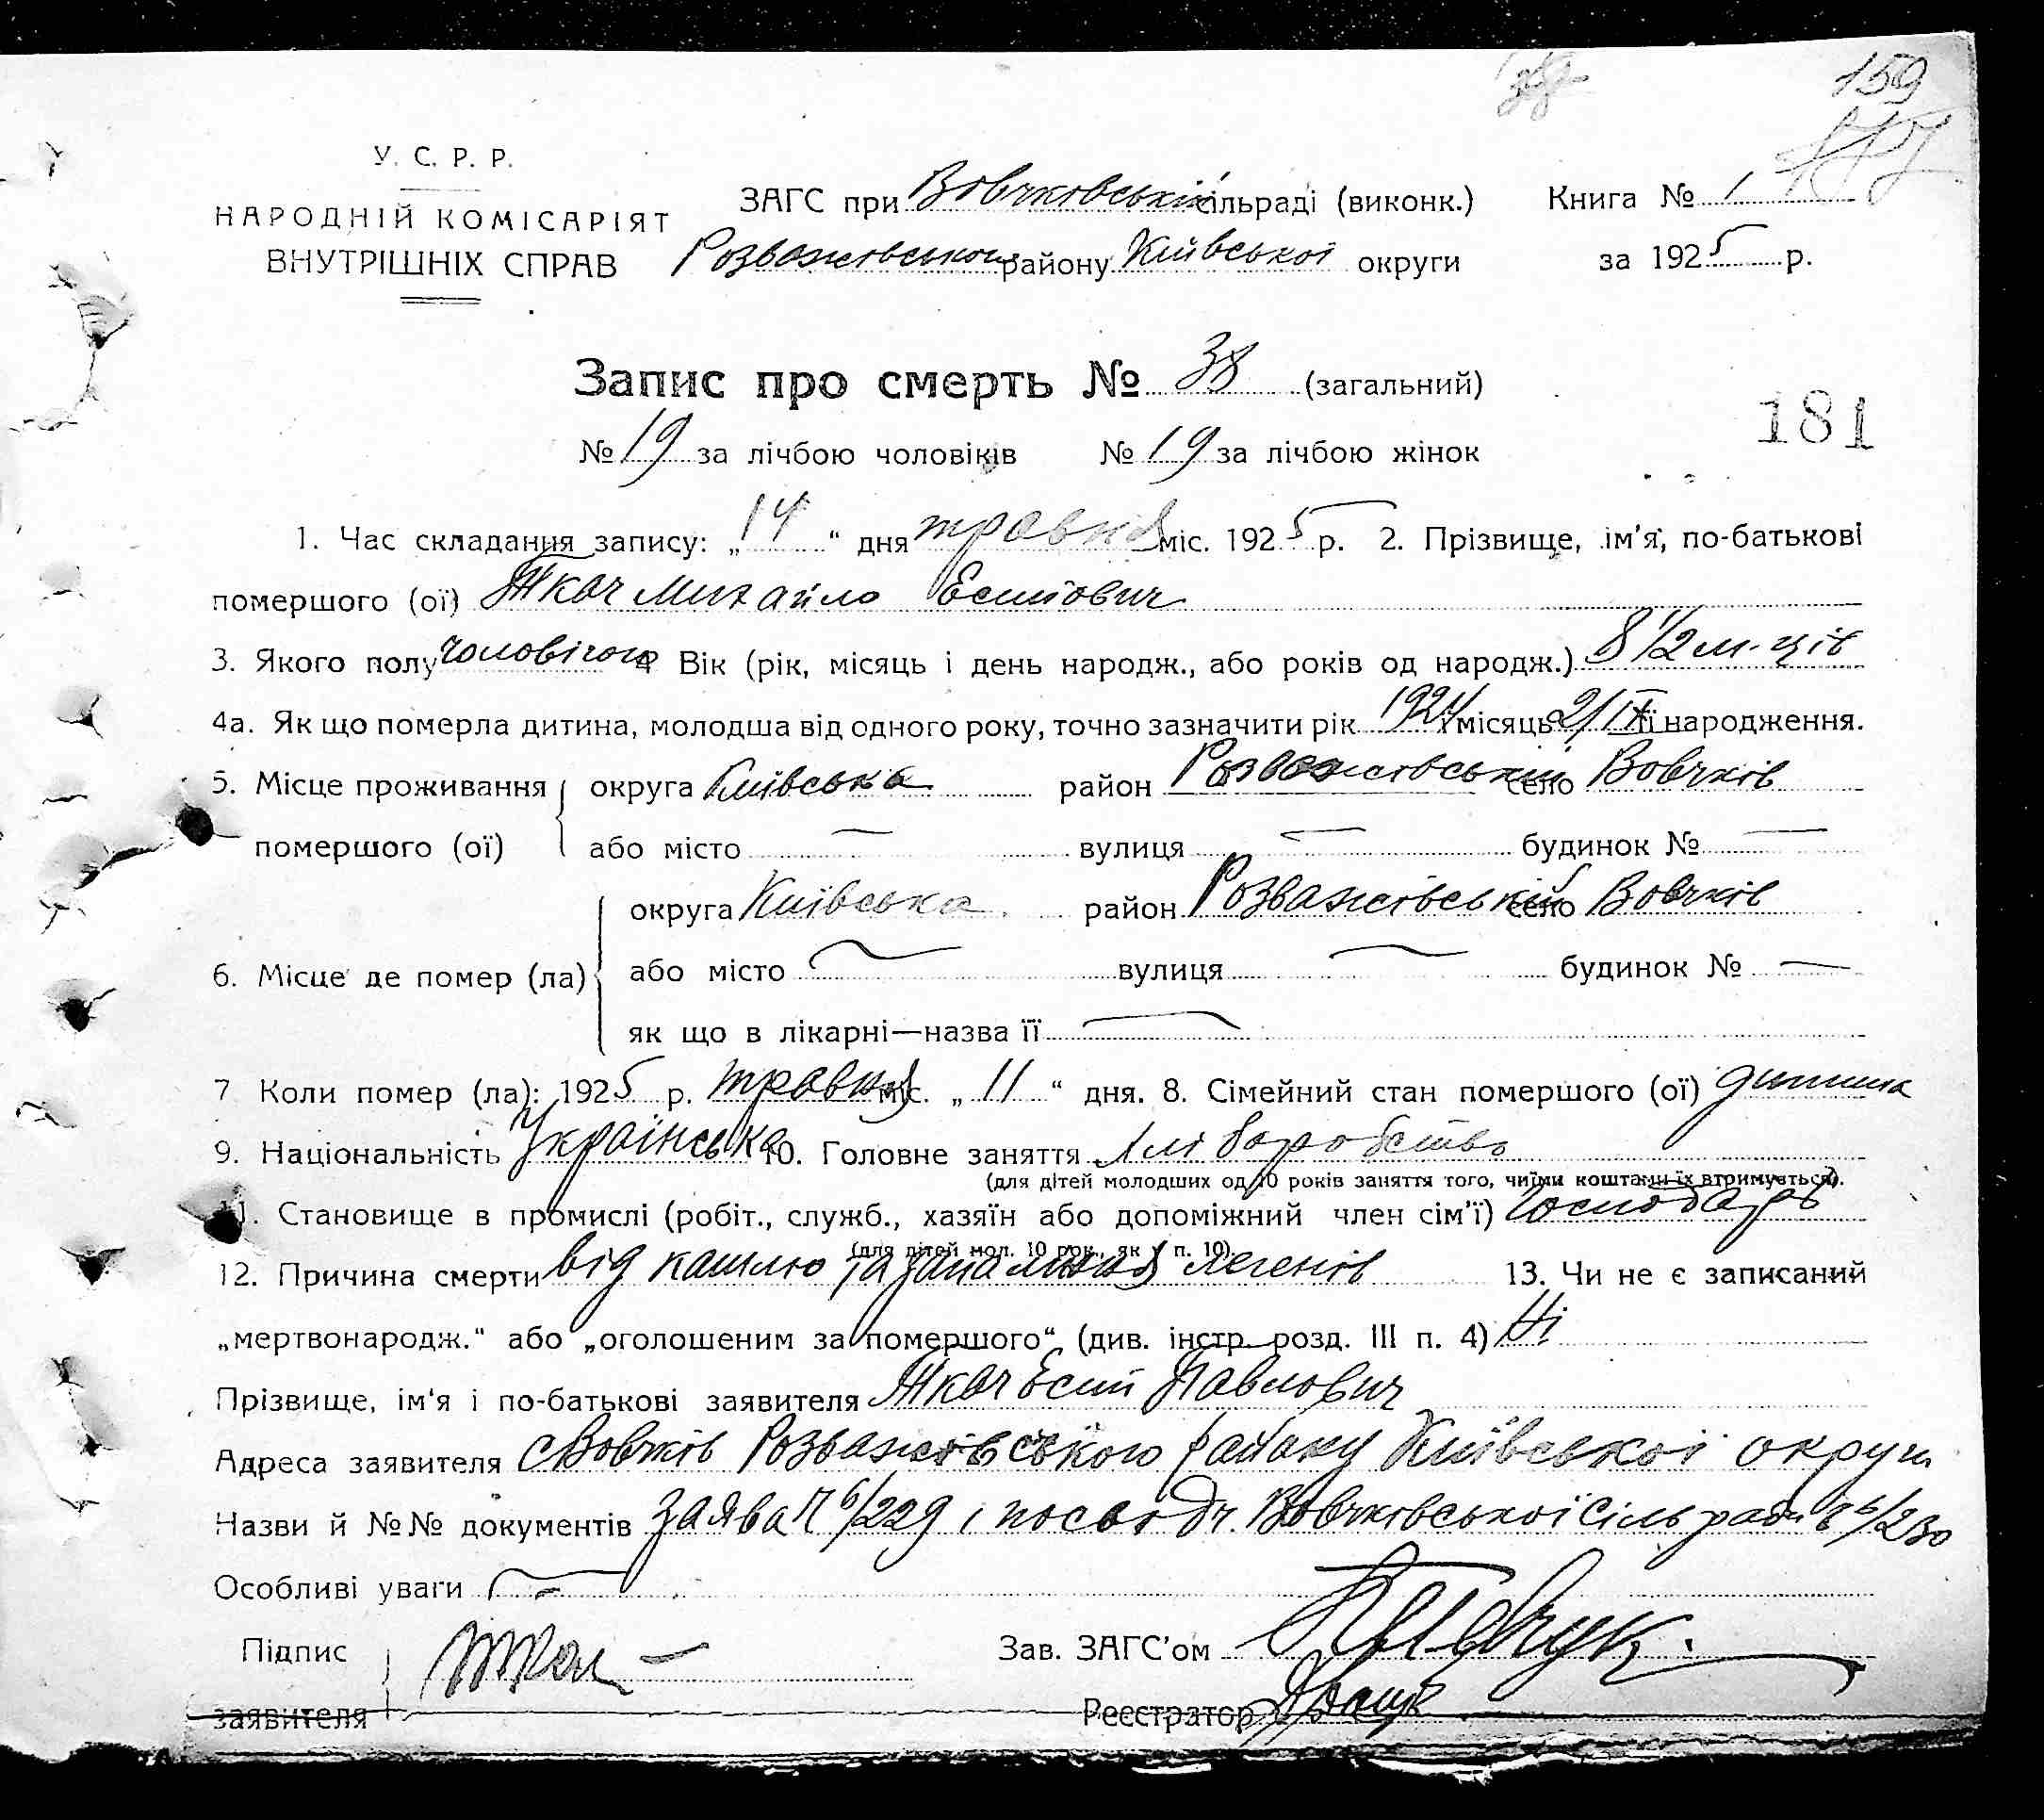 159
У. С. Р. Р.
НАРОДНІЙ КОМІСАРІЯТ
ВНУТРІШНІХ СПРАВ
ЗАГС при Вовчковській сільраді (виконк.) Книга № 1
Розважівського району Київської округи за 1925 р.
Запис про смерть № 38 (загальний)
181
№ 19 за лічбою чоловіків № 19 за лічбою жінок
1. Час складання запису: „14“ дня травня міс. 1925 р. 2. Прізвище, ім'я, по-батькові
помершого (ої) Ткач Михайло Есипович
3. Якого полу чоловічого 4 Вік (рік, місяць і день народж., або років од народж.) 8 1/2 м-ців
4а. Як що померла дитина, молодша від одного року, точно зазначити рік 1924 і місяць 2/IX її народження.
5. Місце проживання округа Київська район Розважівський село Вовчків
помершого (ої) або місто — вулиця — будинок № —
округа Київська район Розважівський село Вовчків
6. Місце де помер (ла) або місто — вулиця — будинок № —
як що в лікарні—назва її —
7 Коли помер (ла): 1925 р. травня міс. „11“ дня. 8. Сімейний стан помершого (ої) дитина
9. Національність Українська 10. Головне заняття хліборобство
(для дітей молодших од 10 років заняття того, чиїми коштами їх втримується).
11. Становище в промислі (робіт., служб., хазяїн або допоміжний член сім'ї) Господарь
(для дітей мол. 10 рок., як у п. 10).
12. Причина смерти від кашлю та запалення легенів 13. Чи не є записаний
„мертвонародж.“ або „оголошеним за помершого“ (див. інстр. розд. III п. 4) Ні
Прізвище, ім'я і по-батькові заявителя Ткач Есип Павлович
Адреса заявителя с Вовчків Розважівського району Київської округи
Назви й №№ документів заява Ч 6/229 і посвідч. Вовчківської Сільради 6/230
Особливі уваги —
Підпис Ткач Зав. ЗАГС'ом
заявителя Реєстратор